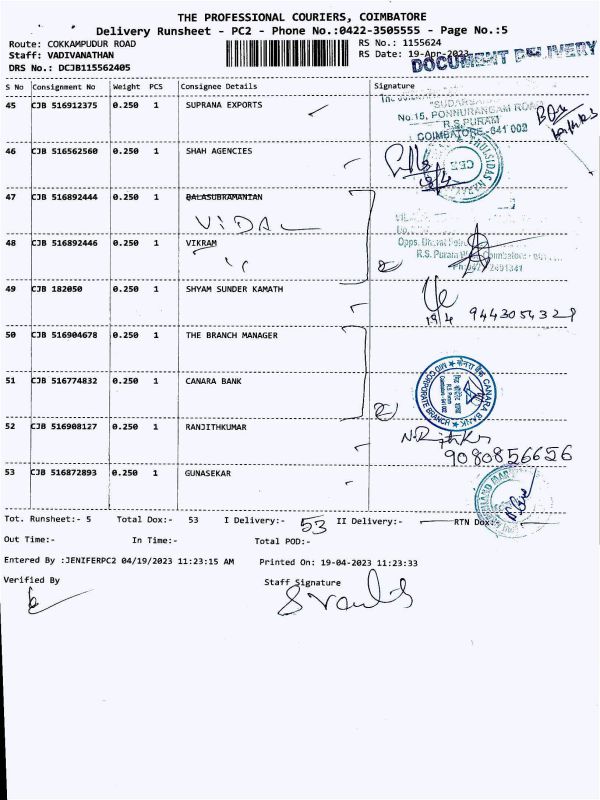 THE PROFESSIONAL COURIERS, COIMBATORE
Delivery Runsheet - PC2 - Phone No.:0422-3505555 - Page No.:5
Route: COKKAMPUDUR ROAD RS No.: 1155624
Staff: VADIVANATHAN RS Date: 19-Apr-2023
DOCUMENT DELIVERY
DRS No.: DCJB115562405
S No Consignment No Weight PCS Consignee Details Signature
45 CJB 516912375 0.250 1 SUPRANA EXPORTS
No.15, PONNURANGAM ROAD
R.S.PURAM
COIMBATORE-641 002
46 CJB 516562560 0.250 1 SHAH AGENCIES
18/4
47 CJB 516892444 0.250 1 BALASUBRAMANIAN
VIDAL
48 CJB 516892446 0.250 1 VIKRAM
Opps. Bharat
R.S. Puram Coimbatore
49 CJB 182050 0.250 1 SHYAM SUNDER KAMATH
19/4 9443054328
50 CJB 516904678 0.250 1 THE BRANCH MANAGER
51 CJB 516774832 0.250 1 CANARA BANK
CANARA BANK
MID CORPORATE BRANCH
52 CJB 516908127 0.250 1 RANJITHKUMAR
9080856656
53 CJB 516872893 0.250 1 GUNASEKAR
Tot. Runsheet:- 5 Total Dox:- 53 I Delivery:- 53 II Delivery:- RTN Dox:-
Out Time:- In Time:- Total POD:-
Entered By :JENIFERPC2 04/19/2023 11:23:15 AM Printed On: 19-04-2023 11:23:33
Verified By Staff Signature